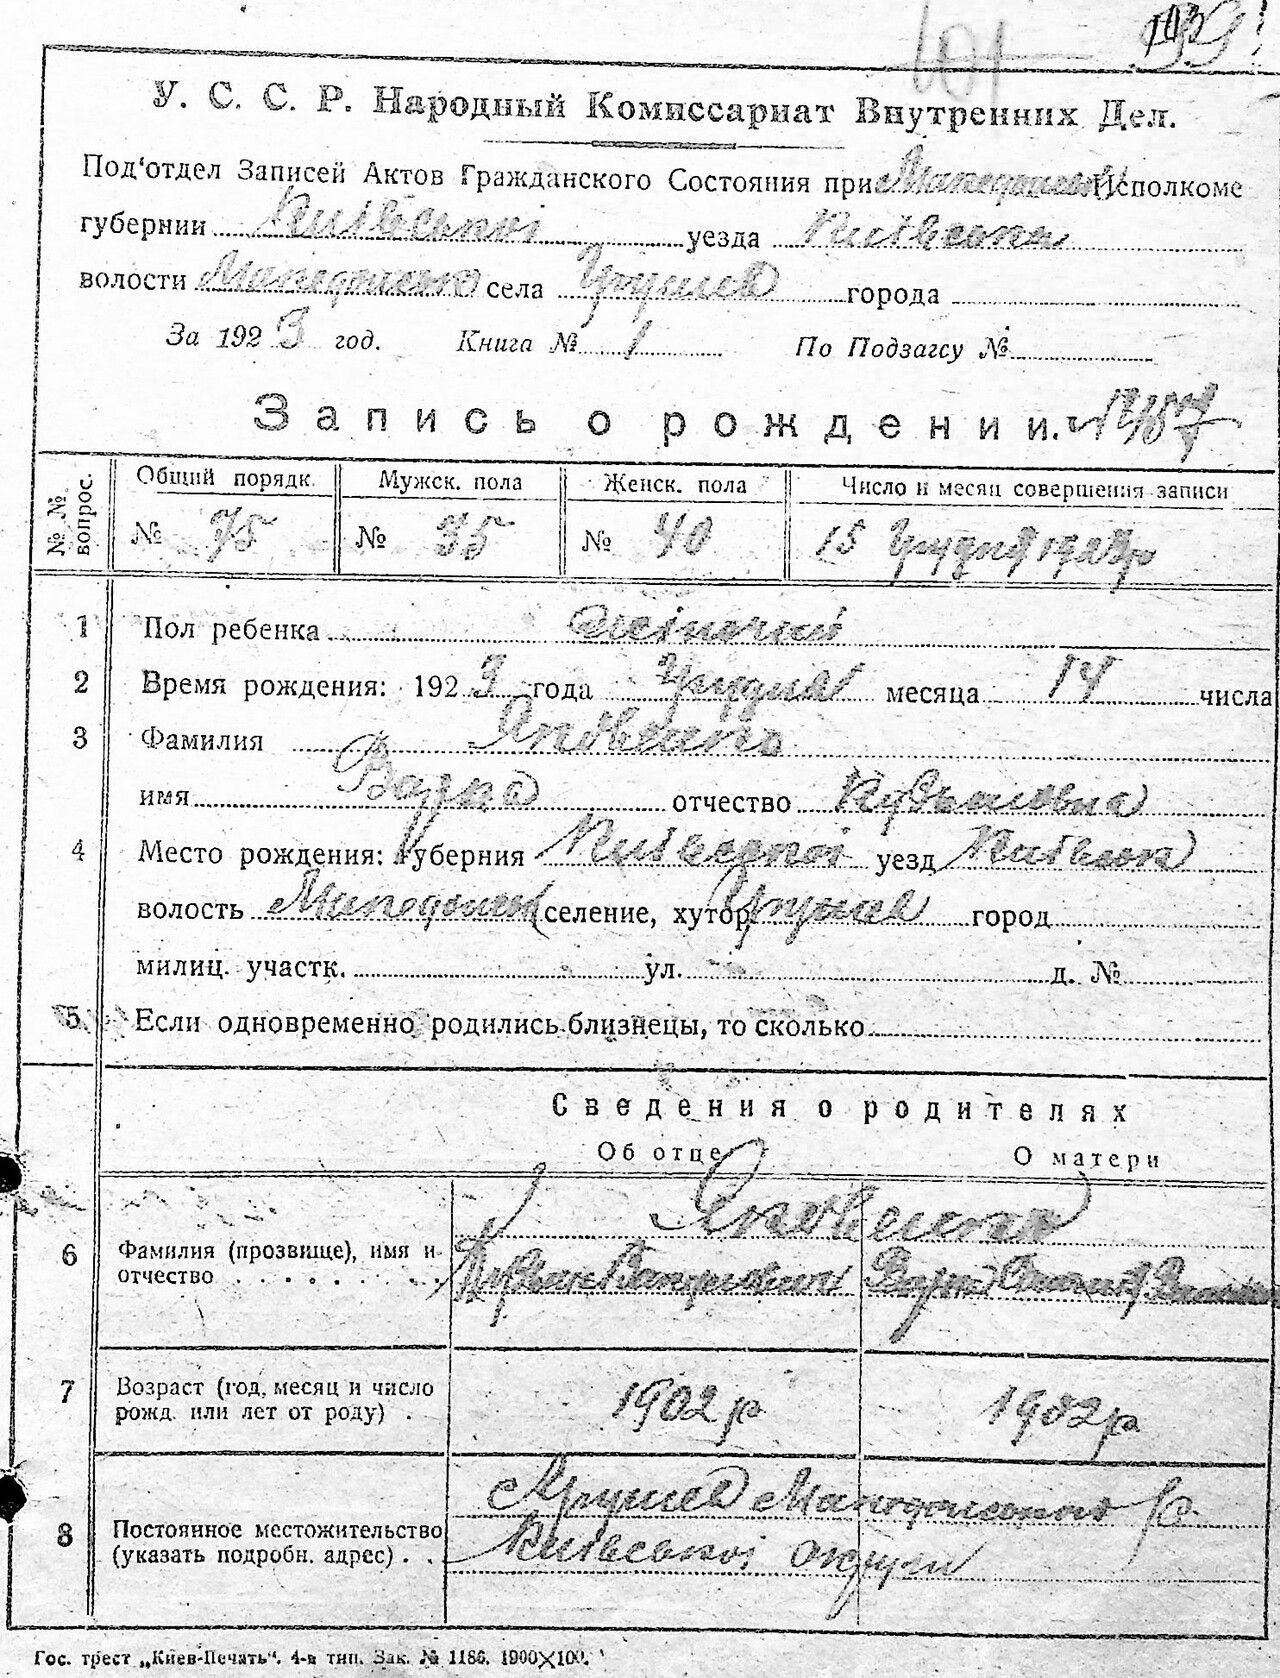 У. С. С. Р. Народный Комиссариат Внутренних Дел.
Под'отдел Записей Актов Гражданского Состояния при Исполкоме
губернии Київської уезда Київськ
волости села Грушев города
За 1923 год. Книга № 1 По Подзагсу №
Запись о рождении.
№ № вопрос. Общий порядк. Мужск. пола Женск. пола Число и месяц совершения записи
№ 75 № 35 № 40 15 Грудня 1923р
1 Пол ребенка жіночий
2 Время рождения: 1923 года Грудня месяца 14 числа
3 Фамилия Яновська
имя Варка отчество Кузьмовна
4 Место рождения: губерния Київської уезд Київськ
волость селение, хутор Грушев город
милиц. участк. ул. д. №
5 Если одновременно родились близнецы, то сколько
Сведения о родителях
Об отце О матери
6 Фамилия (прозвище), имя и отчество
7 Возраст (год, месяц и число рожд. или лет от роду) . 1902 р 1902 р
8 Постоянное местожительство (указать подробн. адрес) . . с Грушев
Київської округи
Гос. трест „Киев-Печать". 4-я тип. Зак. № 1186. 1900×100.